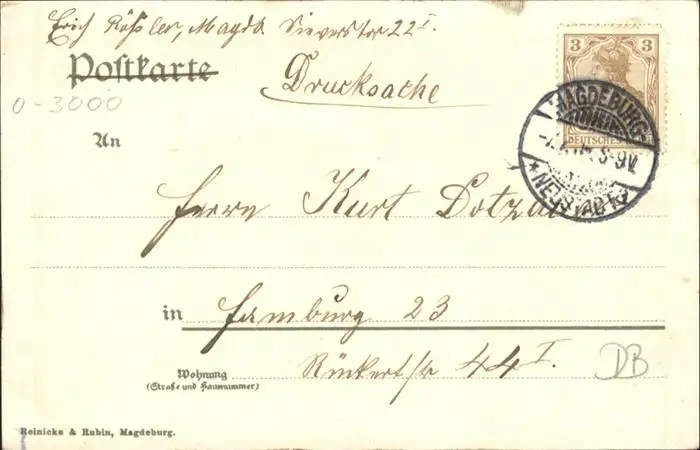 Erich Rößler, Magdb Sieverstor 22 I.
Postkarte
Drucksache
0-3000
An
Herrn Kurt Dotzau
in Hamburg 23
Rückertstr 44 I.
Wohnung
(Straße und Hausnummer)
DB
Reinicke & Rubin, Magdeburg.
3 3
DEUTSCHES
MAGDEBURG
8-9V.
* NEUSTADT